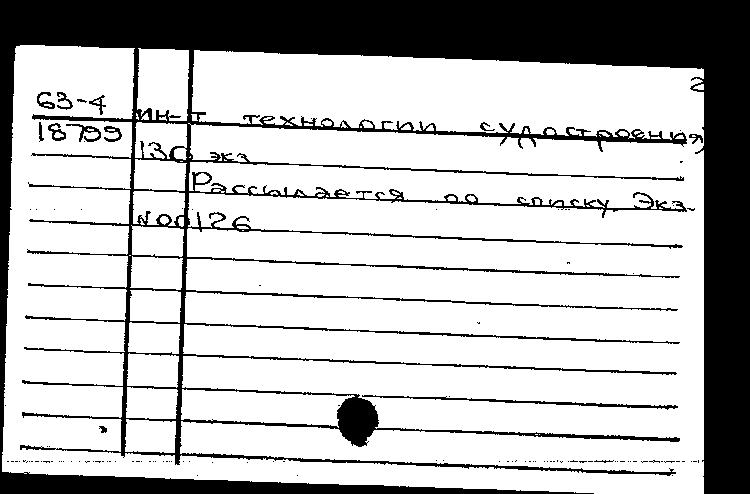 2
63-4 ин-т технологии судостроения)
18799 130 экз
Рассылается по списку. Экз.
N00126